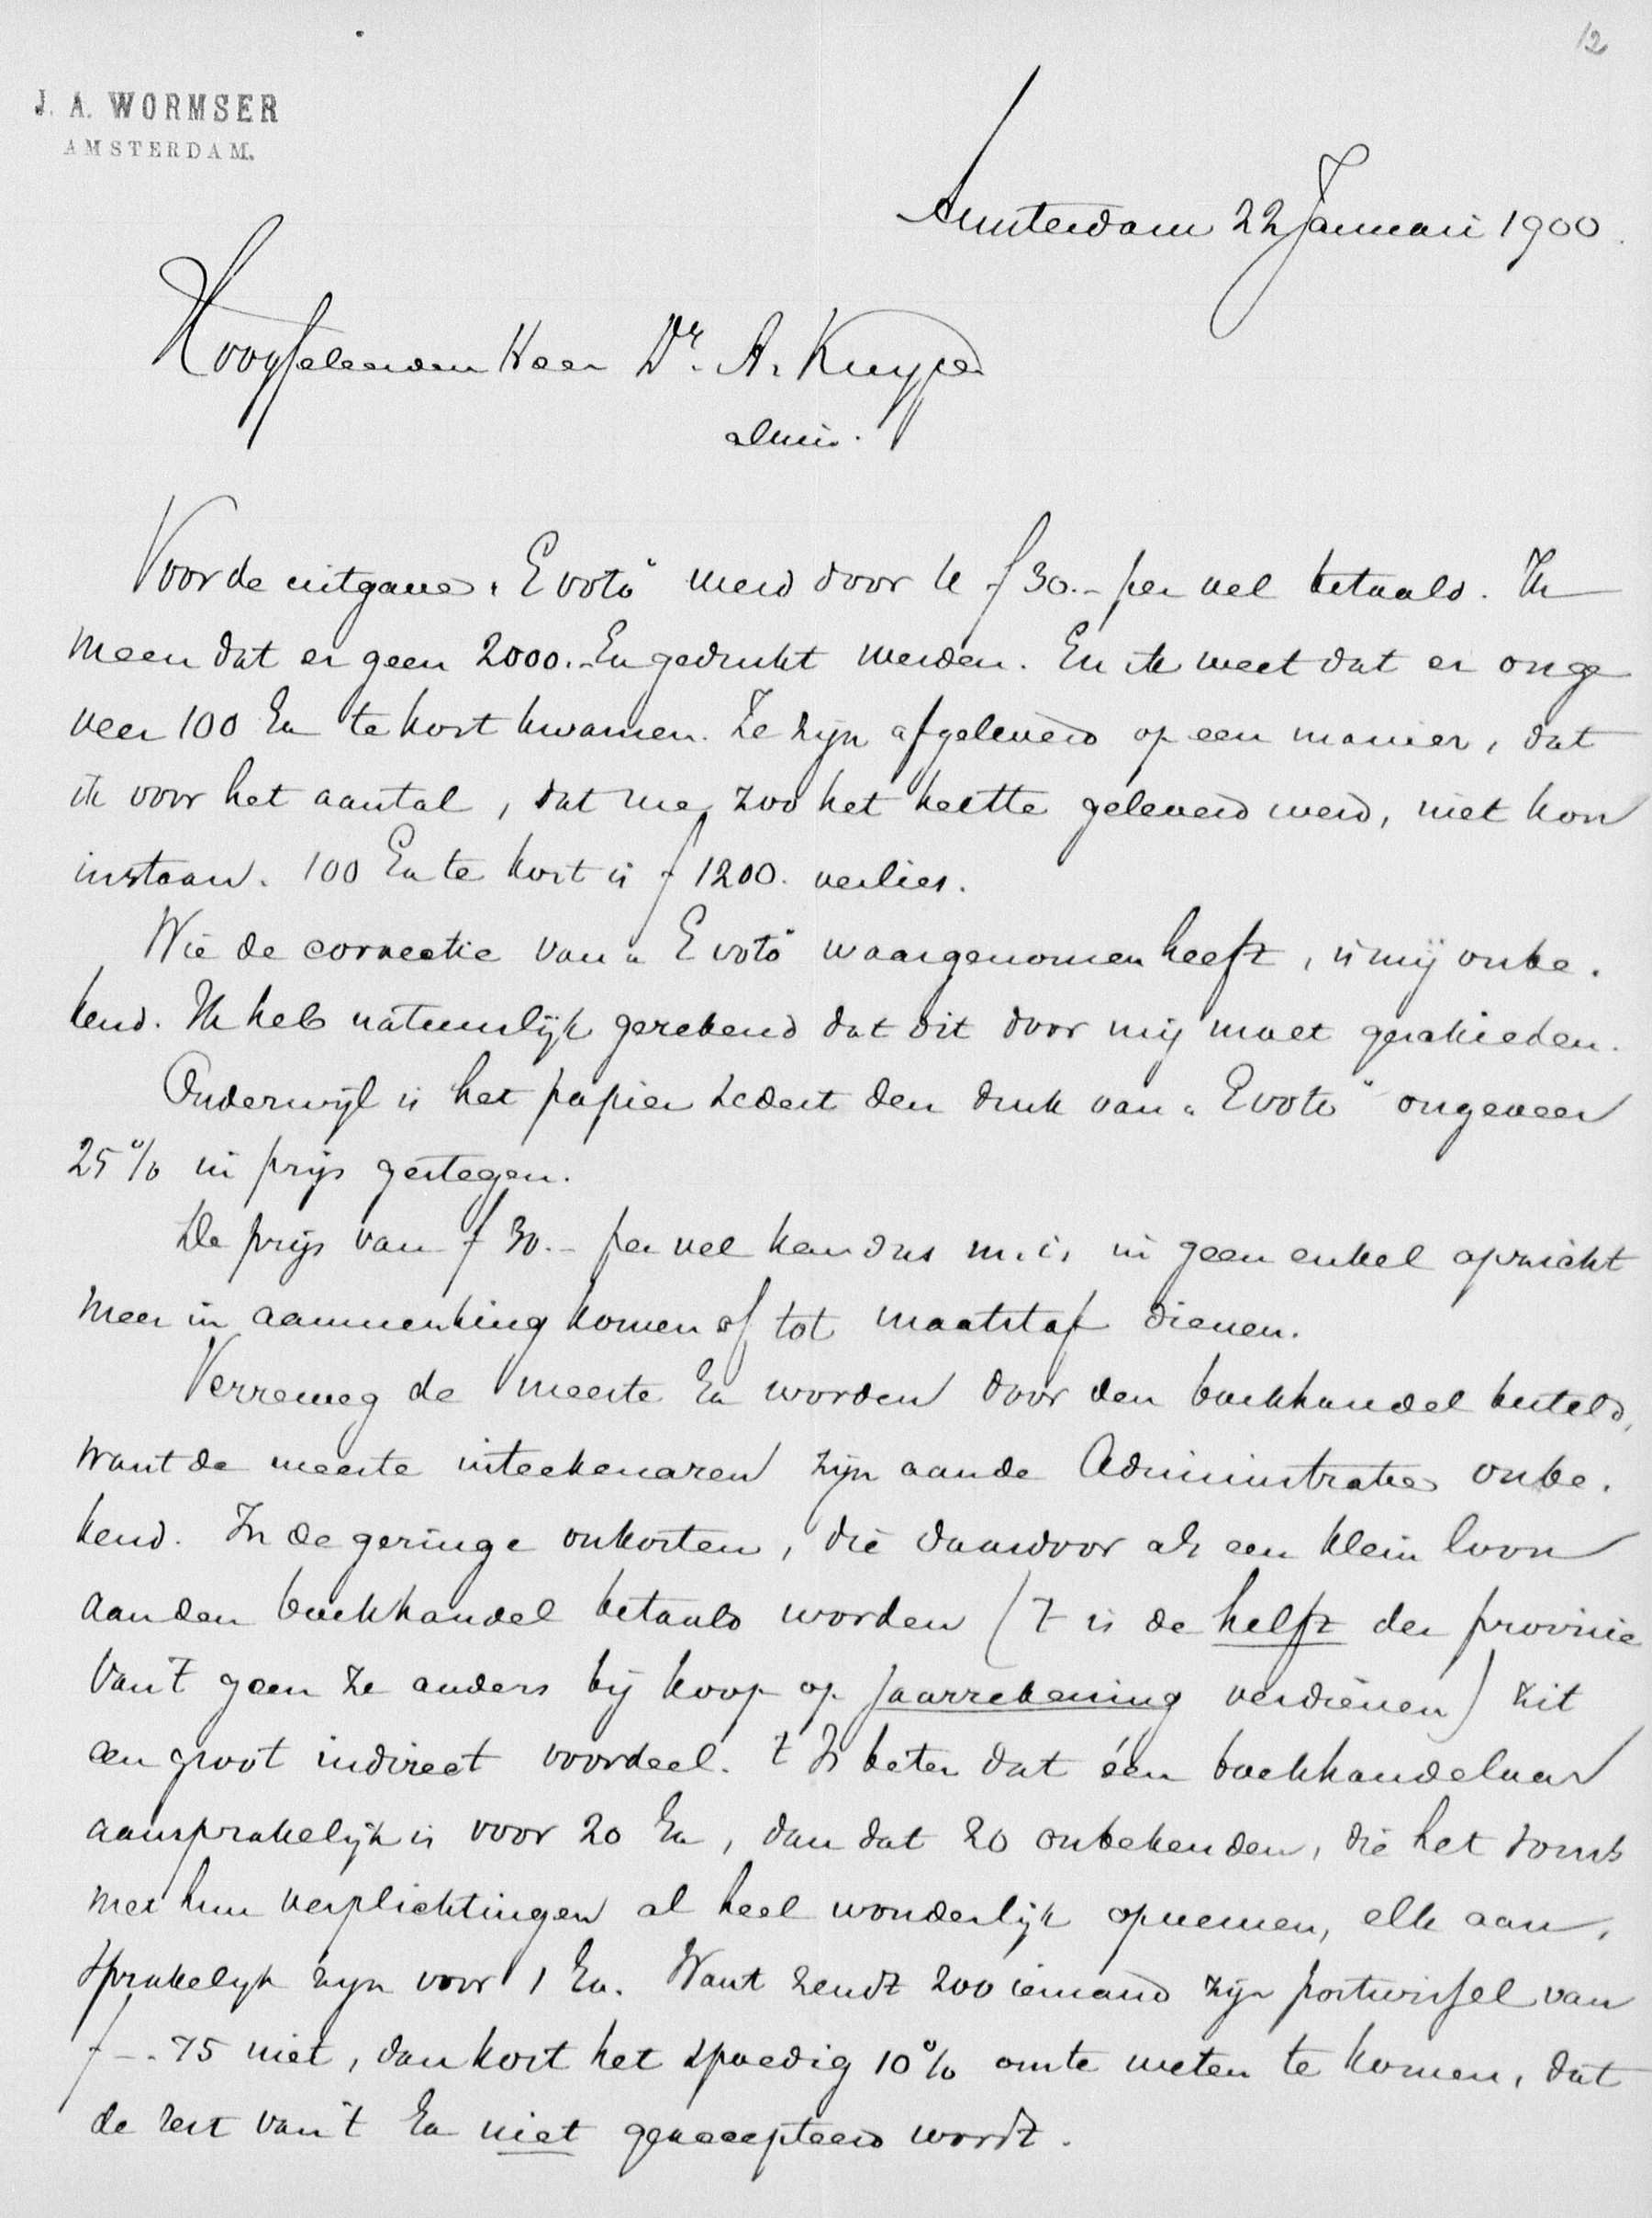 12
J. A. WORMSER
AMSTERDAM.
Amsterdam 22 Januari 1900.
Hooggeleerden Heer Dr. A. Kuyper
alhier.
Voor de uitgave „E voto" werd door U ƒ 30.- per vel betaald. Ik
meen dat er geen 2000.- Ex gedrukt werden. En ik weet dat er onge
veer 100 Ex te kort kwamen. Ze zijn afgeleverd op een manier, dat
ik voor het aantal, dat me, zoo het heette geleverd werd, niet kon
instaan. 100 Ex te kort is ƒ 1200. verlies.
Wie de correctie van „E voto" waargenomen heeft, is mij onbe-
kend. Ik heb natuurlijk gerekend dat dit door mij moet geschieden.
Onderwijl is het papier sedert den druk van „E voto" ongeveer
25% in prijs gestegen.
De prijs van ƒ 30.- per vel kan dus m.i. in geen enkel opzicht
meer in aanmerking komen of tot maatstaf dienen.
Verreweg de meeste Ex worden door den boekhandel besteld,
want de meeste inteekenaren zijn aan de Administratie onbe-
kend. In de geringe onkosten, die daarvoor als een klein loon
aan den boekhandel betaald worden ('t is de helft der provisie
van 't geen ze anders bij koop op jaarrekening verdienen) zit
een groot indirect voordeel. 't Is beter dat één boekhandelaar
aansprakelijk is voor 20 Ex, dan dat 20 onbekenden, die het soms
met hun verplichtingen al heel wonderlijk opnemen, elk aan-
sprakelijk zijn voor 1 Ex. Want zendt zoo iemand zijn postwissel van
ƒ -.75 niet, dan kost het spoedig 10% om te weten te komen, dat
de rest van 't Ex niet geaccepteerd wordt.